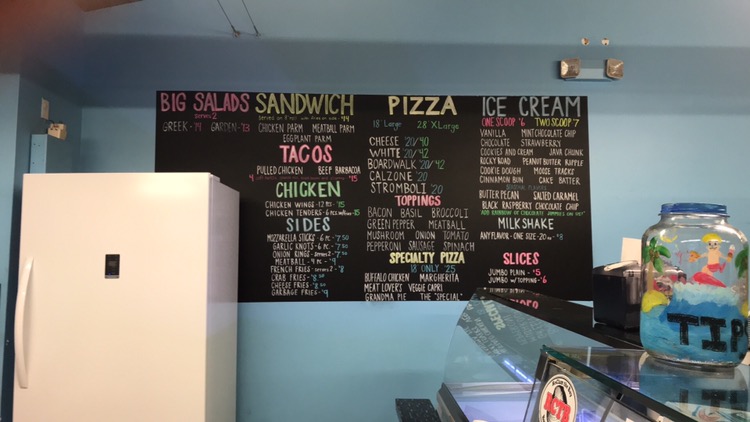 BIG SALADS
SERVES 2
GREEK - 14 GARDEN - 13
SANDWICH
CHICKEN PARM MEATBALL PARM
EGGPLANT PARM
TACOS
PULLED CHICKEN BEEF BARBACOA
CHICKEN
CHICKEN WINGS - 12 PCS - 15
SIDES
MOZZARELLA STICKS - 6 PC. - 7.50
GARLIC KNOTS - 6 PC. - 7.50
ONION RINGS - SERVES 2 - 7.50
MEATBALL - 4 PC. - 9
FRENCH FRIES - SERVES 2 - 8
CRAB FRIES - 8.50
CHEESE FRIES - 8.50
GARBAGE FRIES - 9
PIZZA
18" Large 28" X Large
CHEESE 20/40
WHITE 20/42
BOARDWALK 20/42
CALZONE 20
STROMBOLI 20
TOPPINGS
BACON BASIL BROCCOLI
GREEN PEPPER MEATBALL
MUSHROOM ONION TOMATO
PEPPERONI SAUSAGE SPINACH
SPECIALTY PIZZA
18" ONLY 25
BUFFALO CHICKEN MARGHERITA
MEAT LOVER'S VEGGIE CAPRI
GRANDMA PIE THE "SPECIAL"
ICE CREAM
ONE SCOOP $6 TWO SCOOP $7
VANILLA MINT CHOCOLATE CHIP
CHOCOLATE STRAWBERRY
COOKIES AND CREAM JAVA CHUNK
ROCKY ROAD PEANUT BUTTER RIPPLE
COOKIE DOUGH MOOSE TRACKS
CINNAMON BUN CAKE BATTER
BUTTER PECAN SALTED CARAMEL
BLACK RASPBERRY CHOCOLATE CHIP
ADD RAINBOW OR CHOCOLATE JIMMIES ON US!
MILKSHAKE
ANY FLAVOR - ONE SIZE - 20 oz - $8
SLICES
JUMBO PLAIN - $5
JUMBO w/ TOPPING - $6
TIPS